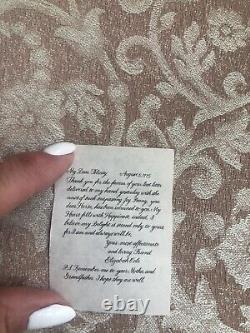 My Dear Felicity August 8, 1775
Thank you for the favour of your last letter
delivered to my hand yesterday with the
news of such surpassing joy Penny,
your dear Horse, has been returned to you. My
Heart fills with Happiness, indeed, I
believe my Delight is second only to yours
for I am and always will be,
Your most affectionate
and loving Friend
Elizabeth Cole
P.S. Remember me to your Mother and
Grandfather. I hope they are well.
ebay